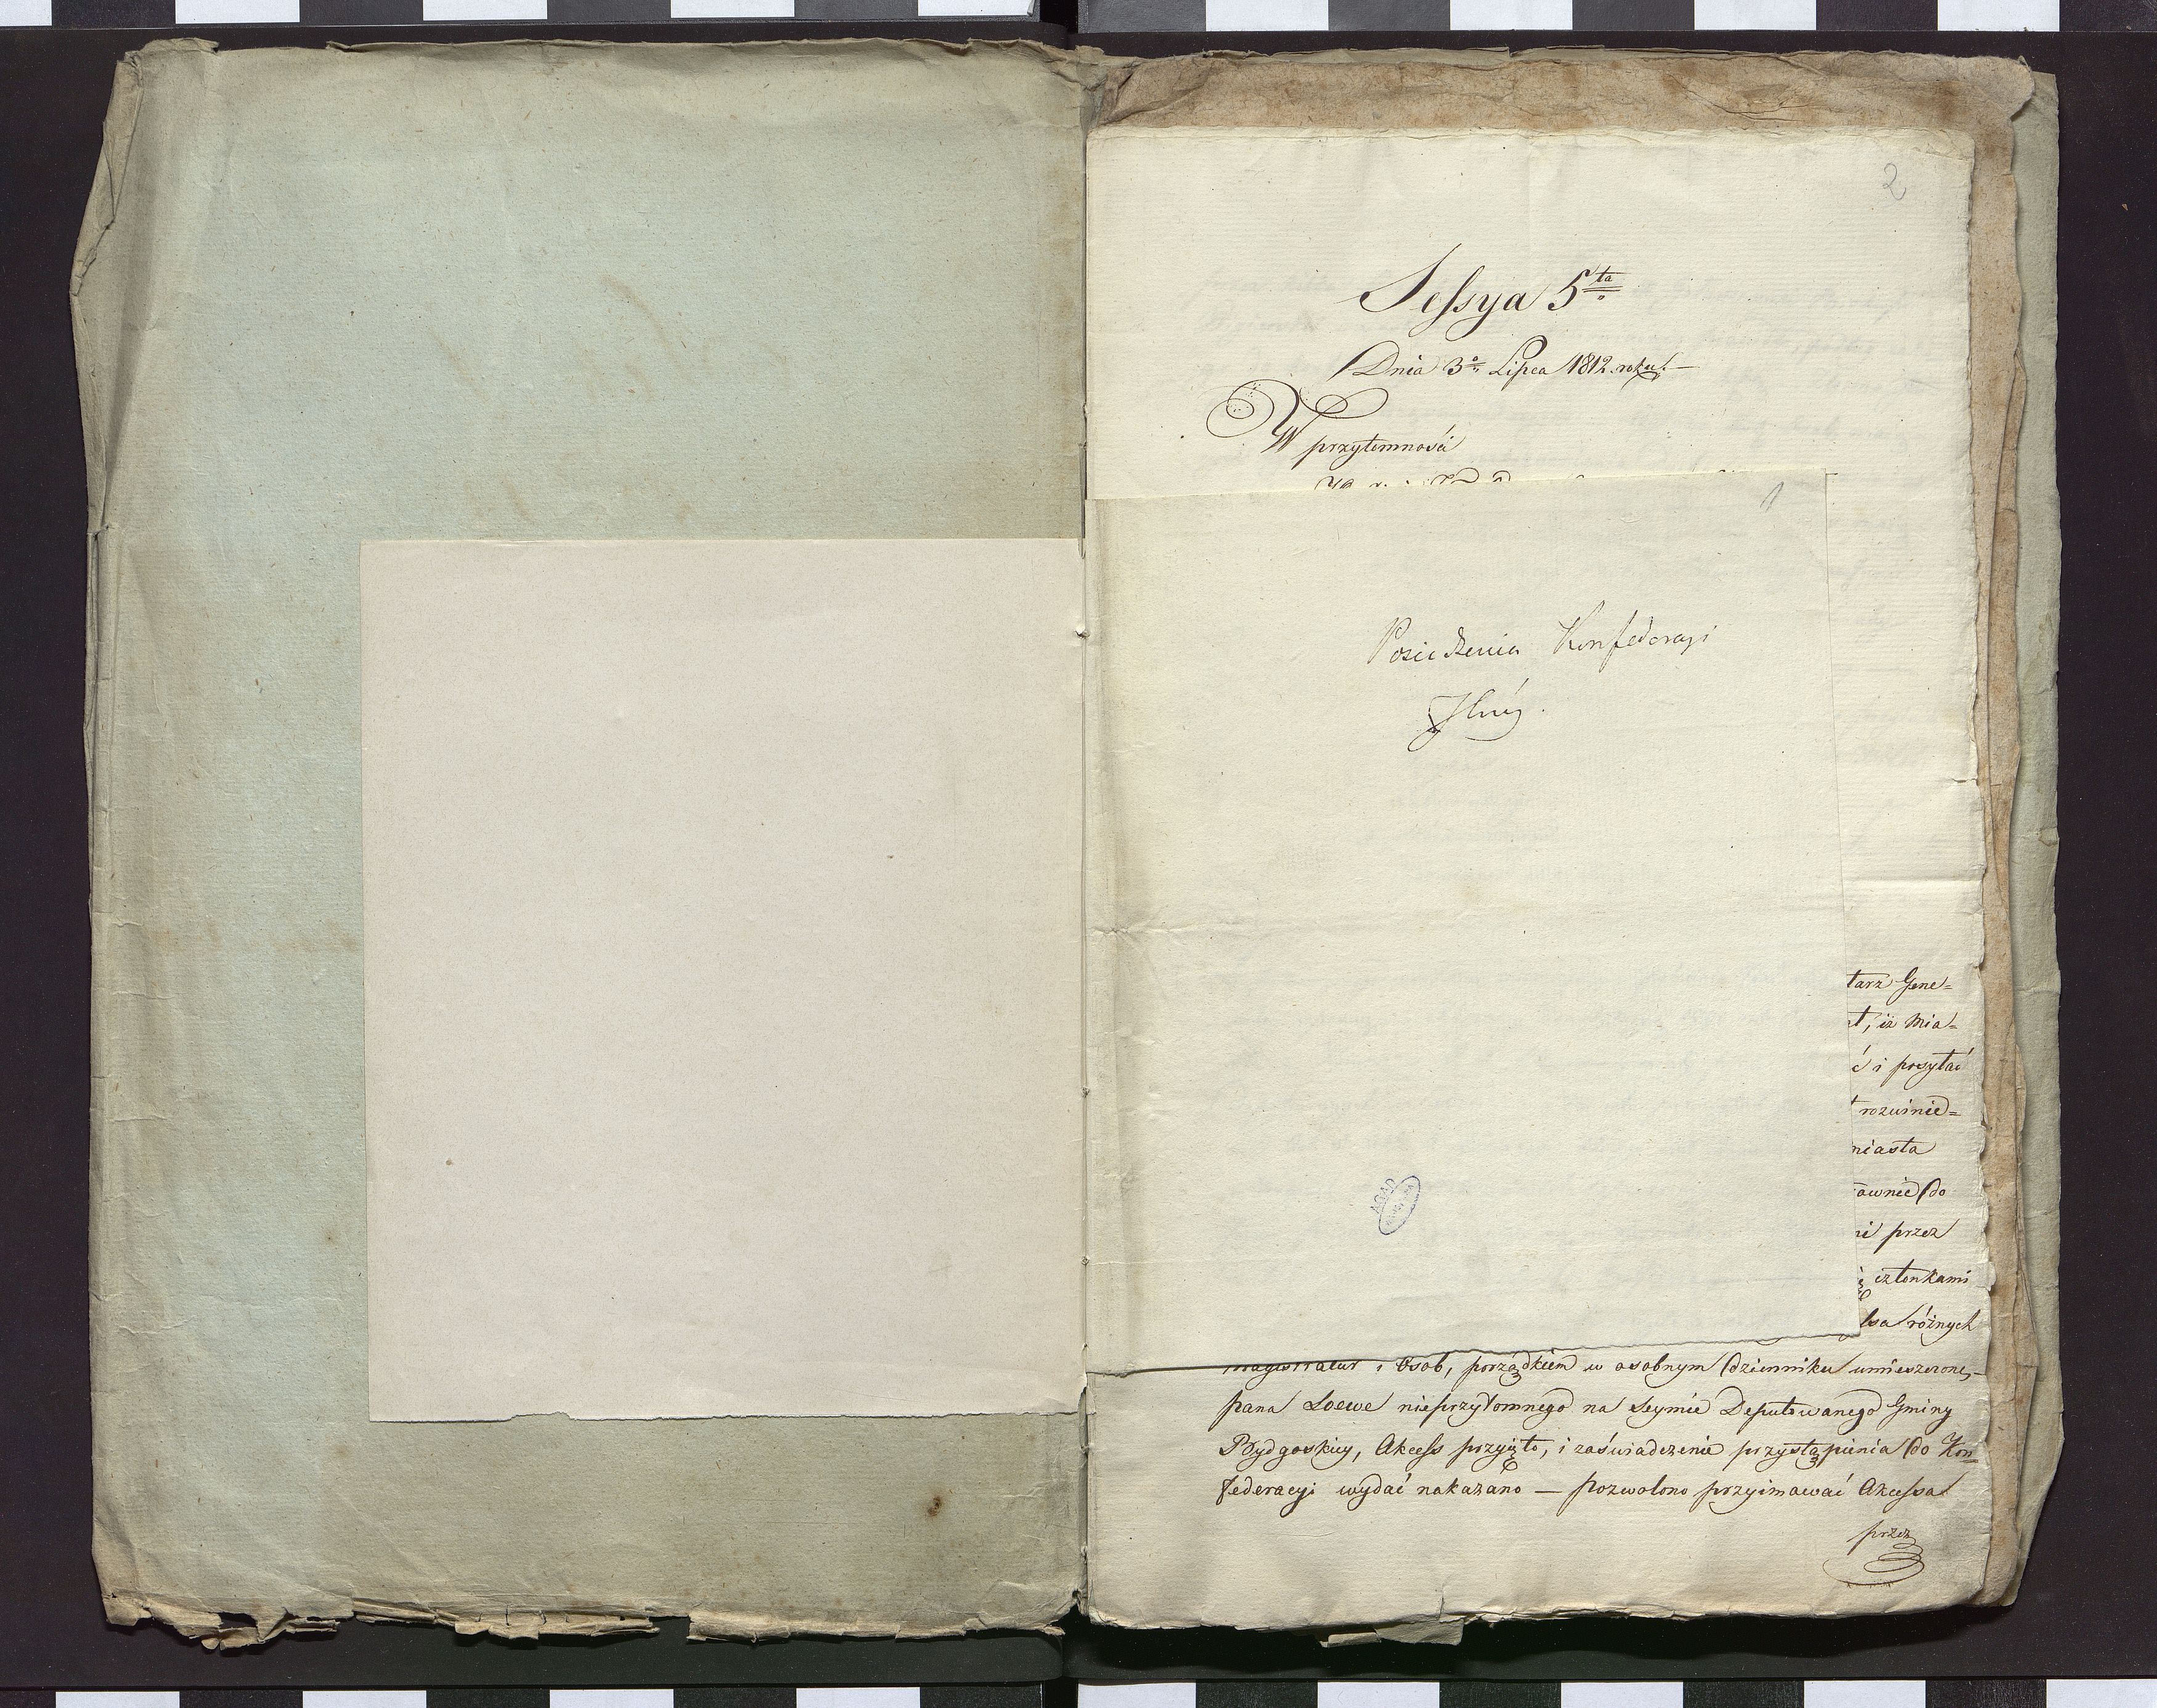 2
Sessya 5ta
Dnia 3o Lipca 1812. roku.
W przytomności
1
Posiedzenia Konfederacyi
Jlnéy.
AGAD
tarz Gene=
t, iż Mia=
ć i posyłać
rozwinie=
miasta
awnie do
ni przez
członkami
różnych
Magistratur i Osob, porządkiem w osobnym dzienniku umieszczone,
pana Loewe nieprzytomnego na Seymie Deputowanego Gminy
Bydgoskiey, Akcess przyięto, i zaświadczenie przystąpienia do Kon=
federacyi wydać nakazano — pozwolono przyimować Akcessa
przez